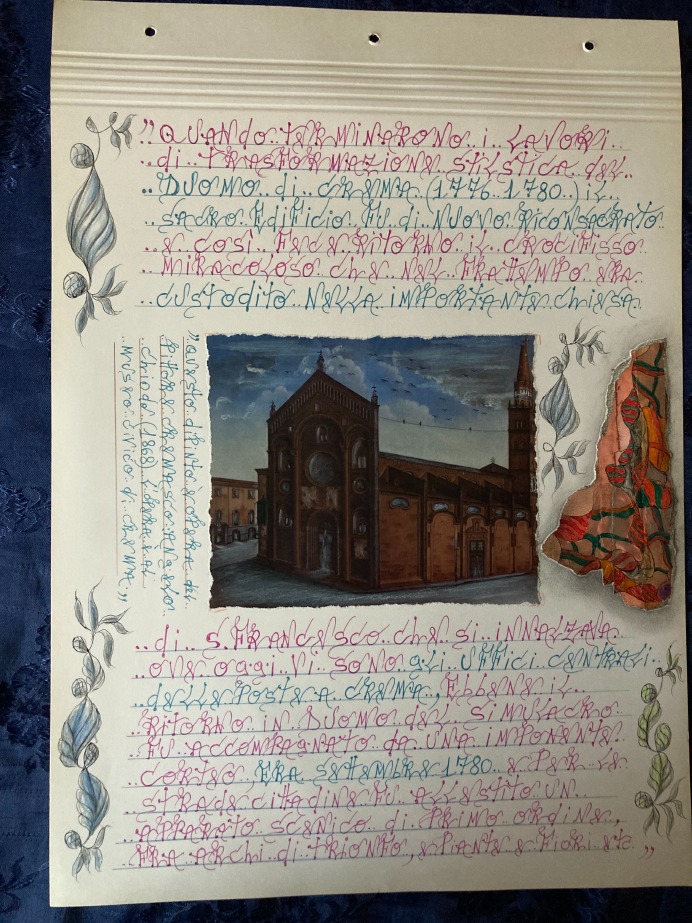 "QUANDO TERMINARONO i LAVORI
di TRASFORMAZIONE STILISTICA dEL
DUOMO di CREMA (1776 1780) iL
SACRO EdiFiCiO FU di NUOVO RiCONSACRATO
E COSì FECE RITORNO iL CROCiFiSSO
MiRACOLOSO ChE NEL FRATTEMPO ERA
CUSTOdiTO NELLA iMPORTANTE ChiESA
"QUESTO diPiNTO è OPERA dEL
PiTTORE CREMASCO ANGELO
(1868)
MUSEO CiViCO di CREMA"
di S. FRANCESCO ChE Si iNNALZAVA
OVE OGGi Vi SONO gLi UFFiCi CENTRALi
dELLE POSTE A CREMA, EBBENE iL
RiTORNO iN DUOMO dEL SiMULACRO
FU ACCOMPAGNATO dA UNA iMPONENTE
CORTEO ERA SETTEMBRE 1780 E PER LE
STRADE CiTTAdiNE FU ALLESTiTO UN
APPARATO SCENiCO di PRiMO ORdiNE,
FRA ARChi di TRiONFO, E PiANTE E FiORi ETC."